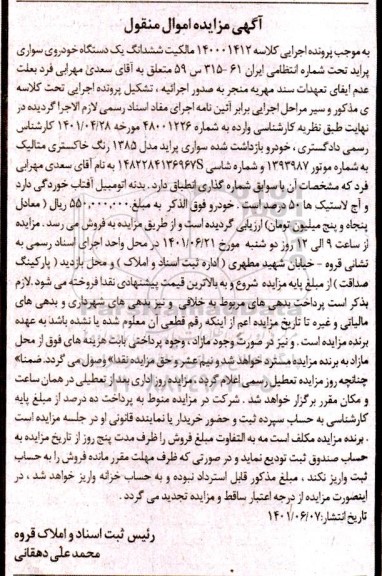 آگهی مزایده اموال منقول
به موجب پرونده اجرایی کلاسه ۱۴۰۰۰۱۴۱۲ مالکیت ششدانگ یک دستگاه خودروی سواری
پراید تحت شماره انتظامی ایران ۶۱ -۳۱۵ س ۵۹ متعلق به آقای سعدی مهرابی فرد بعلت
عدم ایفای تعهدات سند مهریه منجر به صدور اجرائیه ، تشکیل پرونده اجرایی تحت کلاسه
ی مذکور و سیر مراحل اجرایی برابر آئین نامه اجرای مفاد اسناد رسمی لازم الاجرا گردیده در
نهایت طبق نظریه کارشناسی وارده به شماره ۴۸۰۰۱۲۲۶ مورخه ۱۴۰۱/۰۴/۲۸ کارشناس
رسمی دادگستری ، خودرو بازداشت شده سواری پراید مدل ۱۳۸۵ رنگ خاکستری متالیک
به شماره موتور ۱۳۹۳۹۸۷ و شماره شاسی S۱۴۸۲۲۸۴۱۳۶۹۶۷ به نام آقای سعدی مهرابی
فرد که مشخصات آن با سوابق شماره گذاری انطباق دارد . بدنه اتومبیل آفتاب خوردگی دارد
و آج لاستیک ها ۵۰ درصد است . خودرو فوق الذکر به مبلغ ۵۵۰,۰۰۰,۰۰۰ ریال ( معادل
پنجاه و پنج میلیون تومان) ارزیابی گردیده است و از طریق مزایده به فروش می رسد . مزایده
از ساعت ۹ الی ۱۲ روز دو شنبه مورخ ۱۴۰۱/۰۶/۲۱ در محل واحد اجرای اسناد رسمی به
نشانی قروه - خیابان شهید مطهری ( اداره ثبت اسناد و املاک ) و محل بازدید ( پارکینگ
صداقت ) از مبلغ پایه مزایده شروع و به بالاترین قیمت پیشنهادی نقدا فروخته می شود. لازم
بذکر است پرداخت بدهی های مربوط به خلافی و نیز بدهی های شهرداری و بدهی های
مالیاتی و غیره تا تاریخ مزایده اعم از اینکه رقم قطعی آن معلوم شده یا نشده باشد به عهده
برنده مزایده است . و نیز در صورت وجود مازاد ، وجوه پرداختی بابت هزینه های فوق از محل
مازاد به برنده مزایده مسترد خواهد شد و نیم عشر و حق مزایده نقدا وصول می گردد. ضمنا
چنانچه روز مزایده تعطیل رسمی اعلام گردد ، مزایده روز اداری بعد از تعطیلی در همان ساعت
و مکان مقرر برگزار خواهد شد . شرکت در مزایده منوط به پرداخت ده درصد از مبلغ پایه
کارشناسی به حساب سپرده ثبت و حضور خریدار یا نماینده قانونی او در جلسه مزایده است
. برنده مزایده مکلف است مه به التفاوت مبلغ فروش را ظرف مدت پنج روز از تاریخ مزایده به
حساب صندوق ثبت تودیع نماید و در صورتی که ظرف مهلت مقرر مانده فروش را به حساب
ثبت واریز نکند ، مبلغ مذکور قابل استرداد نبوده و به حساب خزانه واریز خواهد شد ، در
اینصورت مزایده از درجه اعتبار ساقط و مزایده تجدید می گردد .
تاریخ انتشار: ۱۴۰۱/۰۶/۰۷
رئیس ثبت اسناد و املاک قروه
محمد علی دهقانی